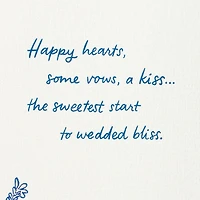 Happy hearts,
some vows, a kiss...
the sweetest start
to wedded bliss.